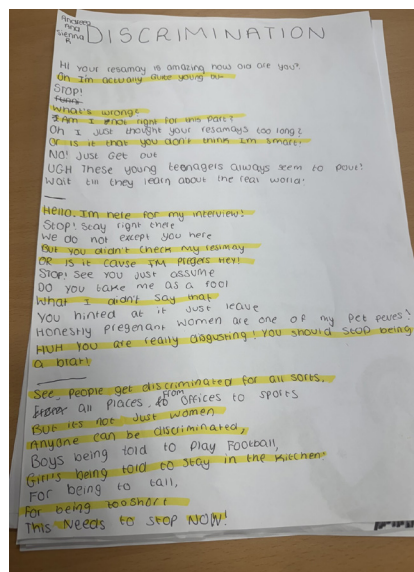 Andreea
Ana
Sienna
R
DISCRIMINATION
Hi your resamay is amazing now old are you?
Oh I'm actually quite young bu-
STOP!
What's wrong?
Am I not right for this part?
Oh I just thought your resamays too long?
Or is it that you don't think I'm smart.
NO! Just Get out
UGH These young teenagers always seem to pout!
Wait till they learn about the real world.
Hello. I'm here for my interview!
STOP! Stay right there
We do not except you here
But you didn't check my resimay
OR is it cause I'm Pregers Hey!
STOP! See you just assume
Do you take me as a fool
What I didn't say that
You hinted at it just leave
Honestly pregenant women are one of my pet peives!
HUH You are really disgusting! You should stop being
a brat!
See, People get discriminated for all sorts.
From
all places, to offices to sports
But it's not just women
Anyone can be discriminated,
Boys being told to play Football,
Girl's being told to stay in the kitchen.
For being to tall,
For being too short
This Needs to stop NOW!